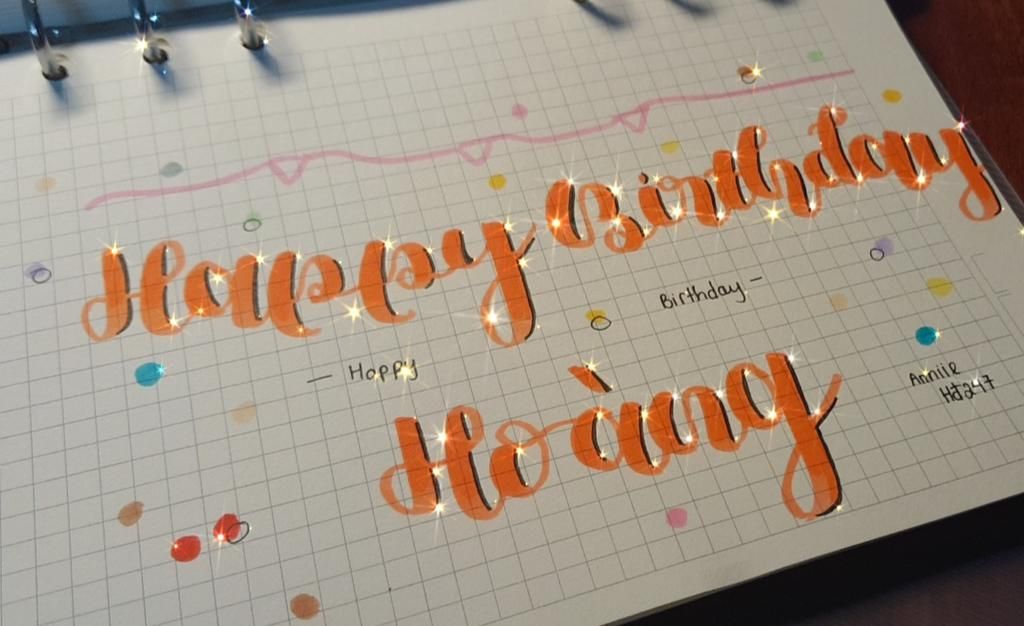 Happy Birthday
— Happy
Birthday —
Hoàng
Anniie
Hd247